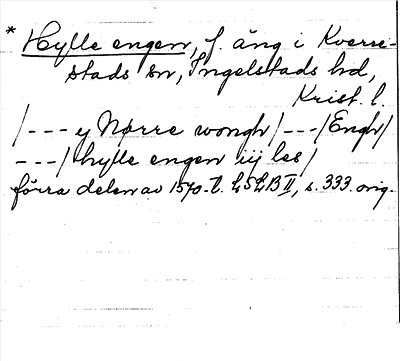 * Hylle engen, f. äng i Kverre-
stads sn, Ingelstads hd,
Krist. l.
/--- y Nørre wongh/---/Engh/
---/ hylle engen iij les/
förra delen av 1570-t. LSLB II, s. 333. orig.